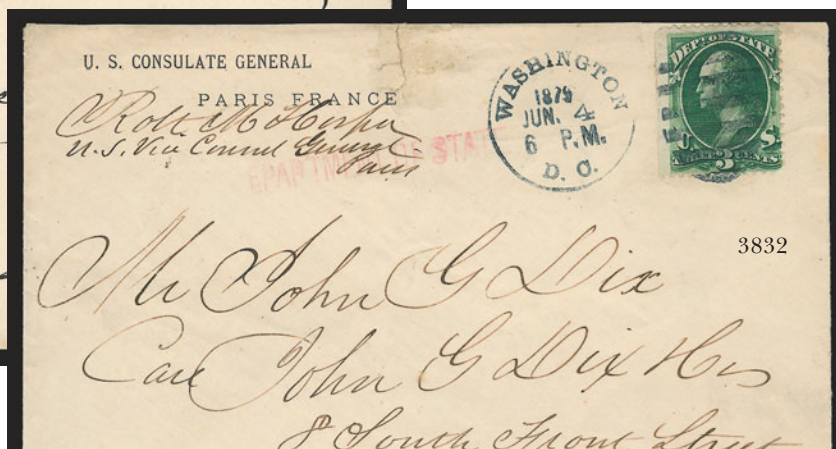 U. S. CONSULATE GENERAL
PARIS FRANCE
Robt M Hooper
U. S. Vice Consul General
Paris
EPARTMENT OF STATE
WASHINGTON
1879
JUN. 4
6 P.M.
D. C.
DEPT OF STATE
U. S.
THREE 3 CENTS
3832
Mr John G Dix
Care John G Dix
8 South Front Street